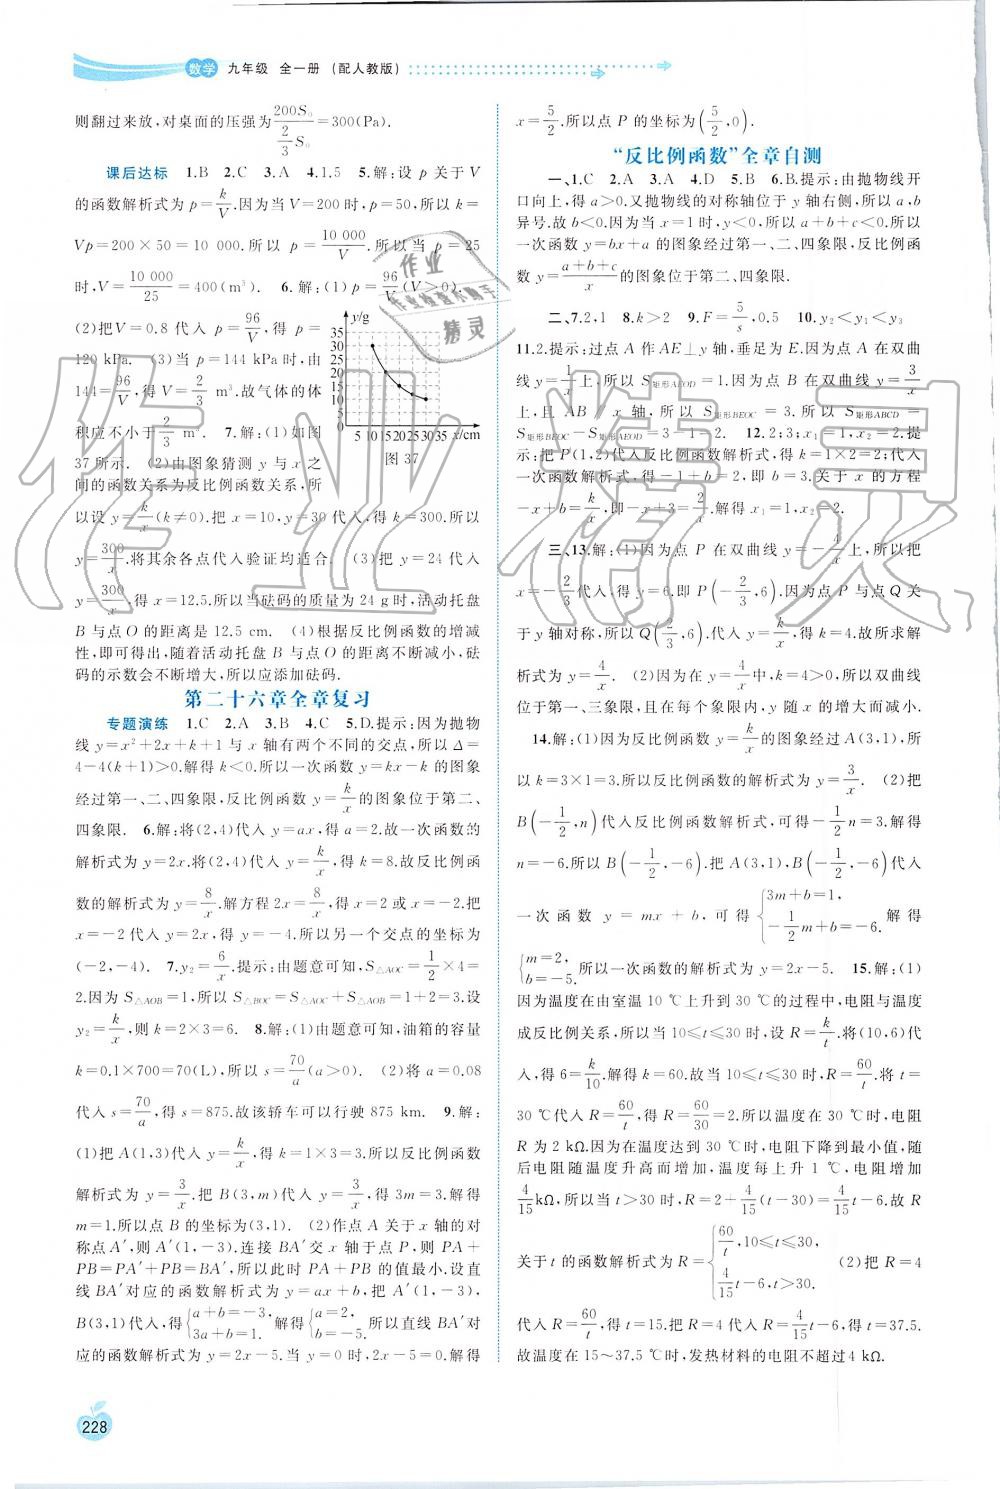 数学 九年级 全一册 (配人教版)
则翻过来放,对桌面的压强为200S₀/(2/3 S₀)=300(Pa).
课后达标 1.B 2.C 3.A 4.1.5 5.解:设 p 关于 V
的函数解析式为 p=k/V.因为当 V=200 时,p=50,所以 k=
Vp=200×50=10 000.所以 p=10 000/V.所以当 p=25
时,V=10 000/25=400(m³). 6.解:(1)p=96/V(V>0).
(2)把V=0.8 代入 p=96/V,得 p=
120 kPa. (3)当 p=144 kPa时,由
144=96/V,得 V=2/3 m³.故气体的体
积应不小于2/3 m³. 7.解:(1)如图
37所示. (2)由图象猜测 y 与 x 之
间的函数关系为反比例函数关系,所
y/g
35
30
25
20
15
10
5
0
5 10 15 20 25 30 35 x/cm
图 37
以设 y=k/x(k≠0).把 x=10,y=30 代入,得 k=300.所以
y=300/x.将其余各点代入验证均适合. (3)把 y=24 代入
y=300/x,得 x=12.5.所以当砝码的质量为 24 g时,活动托盘
B 与点 O 的距离是 12.5 cm. (4)根据反比例函数的增减
性,即可得出,随着活动托盘 B 与点 O 的距离不断减小,砝
码的示数会不断增大,所以应添加砝码.
第二十六章全章复习
专题演练 1.C 2.A 3.B 4.C 5.D.提示:因为抛物
线 y=x²+2x+k+1 与 x 轴有两个不同的交点,所以 Δ=
4-4(k+1)>0.解得 k<0.所以一次函数 y=kx-k 的图象
经过第一、二、四象限,反比例函数 y=k/x 的图象位于第二、
四象限. 6.解:将(2,4)代入 y=ax,得 a=2.故一次函数的
解析式为 y=2x.将(2,4)代入 y=k/x,得 k=8.故反比例函
数的解析式为 y=8/x.解方程 2x=8/x,得 x=2 或 x=-2.把
x=-2 代入 y=2x,得 y=-4.所以另一个交点的坐标为
(-2,-4). 7.y₂=6/x.提示:由题意可知,S△AOC=1/2×4=
2.因为 S△AOB=1,所以 S△BOC=S△AOC+S△AOB=1+2=3.设
y₂=k/x,则 k=2×3=6. 8.解:(1)由题意可知,油箱的容量
k=0.1×700=70(L),所以 s=70/a(a>0). (2)将 a=0.08
代入 s=70/a,得 s=875.故该轿车可以行驶 875 km. 9.解:
(1)把 A(1,3)代入 y=k/x,得 k=1×3=3.所以反比例函数
解析式为 y=3/x.把 B(3,m)代入 y=3/x,得 3m=3.解得
m=1.所以点 B 的坐标为(3,1). (2)作点 A 关于 x 轴的对
称点 A′,则 A′(1,-3).连接 BA′交 x 轴于点 P,则 PA+
PB=PA′+PB=BA′,所以此时 PA+PB 的值最小.设直
线 BA′对应的函数解析式为 y=ax+b,把 A′(1,-3),
B(3,1)代入,得{a+b=-3, 3a+b=1.解得{a=2, b=-5.所以直线 BA′对
应的函数解析式为 y=2x-5.当 y=0 时,2x-5=0.解得
x=5/2.所以点 P 的坐标为(5/2,0).
“反比例函数”全章自测
一、1.C 2.A 3.A 4.D 5.B 6.B.提示:由抛物线开
口向上,得 a>0.又抛物线的对称轴位于 y 轴右侧,所以 a,b
异号.故 b<0.因为当 x=1 时,y<0,所以 a+b+c<0.所以
一次函数 y=bx+a 的图象经过第一、二、四象限,反比例函
数 y=(a+b+c)/x 的图象位于第二、四象限.
二、7.2,1 8.k>2 9.F=5/s,0.5 10.y₂<y₁<y₃
11.2.提示:过点 A 作 AE⊥y 轴,垂足为 E.因为点 A 在双曲
线 y=1/x上,所以 S矩形AEOD=1.因为点 B 在双曲线 y=3/x
上,且 AB∥x 轴,所以 S矩形BEOC=3.所以 S矩形ABCD=
S矩形BEOC-S矩形AEOD=3-1=2. 12.2;3;x₁=1,x₂=2.提
示:把 P(1,2)代入反比例函数解析式,得 k=1×2=2;代入
一次函数解析式,得-1+b=2,即 b=3.关于 x 的方程
-x+b=k/x,即-x+3=2/x.解得 x₁=1,x₂=2.
三、13.解:(1)因为点 P 在双曲线 y=-4/x上,所以把
x=-2/3代入,得 y=6.即 P(-2/3,6).因为点 P 与点 Q 关
于 y 轴对称,所以 Q(2/3,6).代入 y=k/x,得 k=4.故所求解
析式为 y=4/x. (2)因为在 y=4/x中,k=4>0,所以双曲线
位于第一、三象限,且在每个象限内,y 随 x 的增大而减小.
14.解:(1)因为反比例函数 y=k/x的图象经过 A(3,1),所
以 k=3×1=3.所以反比例函数的解析式为 y=3/x. (2)把
B(-1/2,n)代入反比例函数解析式,可得-1/2n=3.解得
n=-6.所以 B(-1/2,-6).把 A(3,1),B(-1/2,-6)代入
一次函数 y=mx+b,可得{3m+b=1, -1/2m+b=-6.解得
{m=2, b=-5.所以一次函数的解析式为 y=2x-5. 15.解:(1)
因为温度在由室温 10 ℃上升到 30 ℃的过程中,电阻与温度
成反比例关系,所以当 10≤t≤30 时,设 R=k/t.将(10,6)代
入,得 6=k/10.解得 k=60.故当 10≤t≤30 时,R=60/t.将 t=
30 ℃代入 R=60/t,得 R=60/30=2.所以温度在 30 ℃时,电阻
R 为 2 kΩ.因为在温度达到 30 ℃时,电阻下降到最小值,随
后电阻随温度升高而增加,温度每上升 1 ℃,电阻增加
4/15kΩ,所以当 t>30 时,R=2+4/15(t-30)=4/15t-6.故 R
关于 t 的函数解析式为 R={60/t,10≤t≤30, 4/15t-6,t>30. (2)把 R=4
代入 R=60/t,得 t=15.把 R=4 代入 R=4/15t-6,得 t=37.5.
故温度在 15~37.5 ℃时,发热材料的电阻不超过4 kΩ.
228
作业
作业检查小助手
精灵
作业精灵